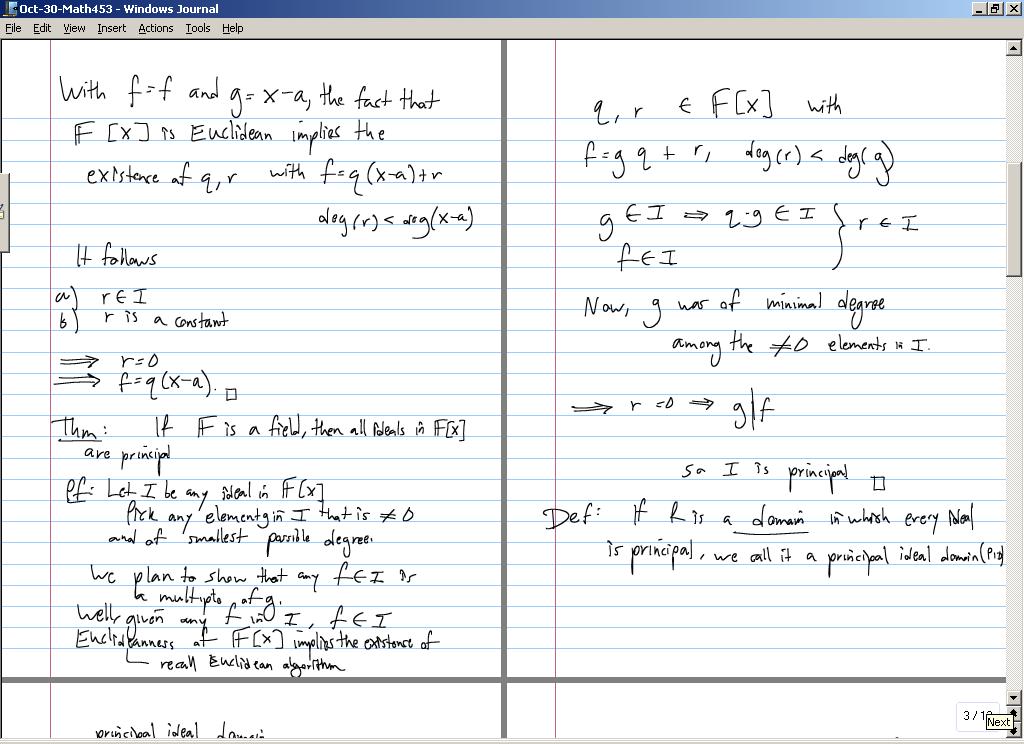 Oct-30-Math453 - Windows Journal
File Edit View Insert Actions Tools Help
With f=f and g=x-a, the fact that
F[x] is Euclidean implies the
existence of q, r with f=q(x-a)+r
deg(r)<deg(x-a)
It follows
a) r∈I
b) r is a constant
⟹ r=0
⟹ f=q(x-a). □
Thm: If F is a field, then all ideals in F[x]
are principal
Pf: Let I be any ideal in F[x]
Pick any element g in I that is ≠0
and of smallest possible degree.
We plan to show that any f∈I is
a multiple of g.
Well, given any f in I, f∈I
Euclideanness of F[x] implies the existence of
recall Euclidean algorithm
q, r ∈ F[x] with
f=g q + r, deg(r) < deg(g)
g∈I ⟹ q·g∈I } r∈I
f∈I
Now, g was of minimal degree
among the ≠0 elements in I.
⟹ r=0 ⟹ g|f
so I is principal □
Def: If R is a domain in which every ideal
is principal, we call it a principal ideal domain (PID)
principal ideal domain
3/1
Next